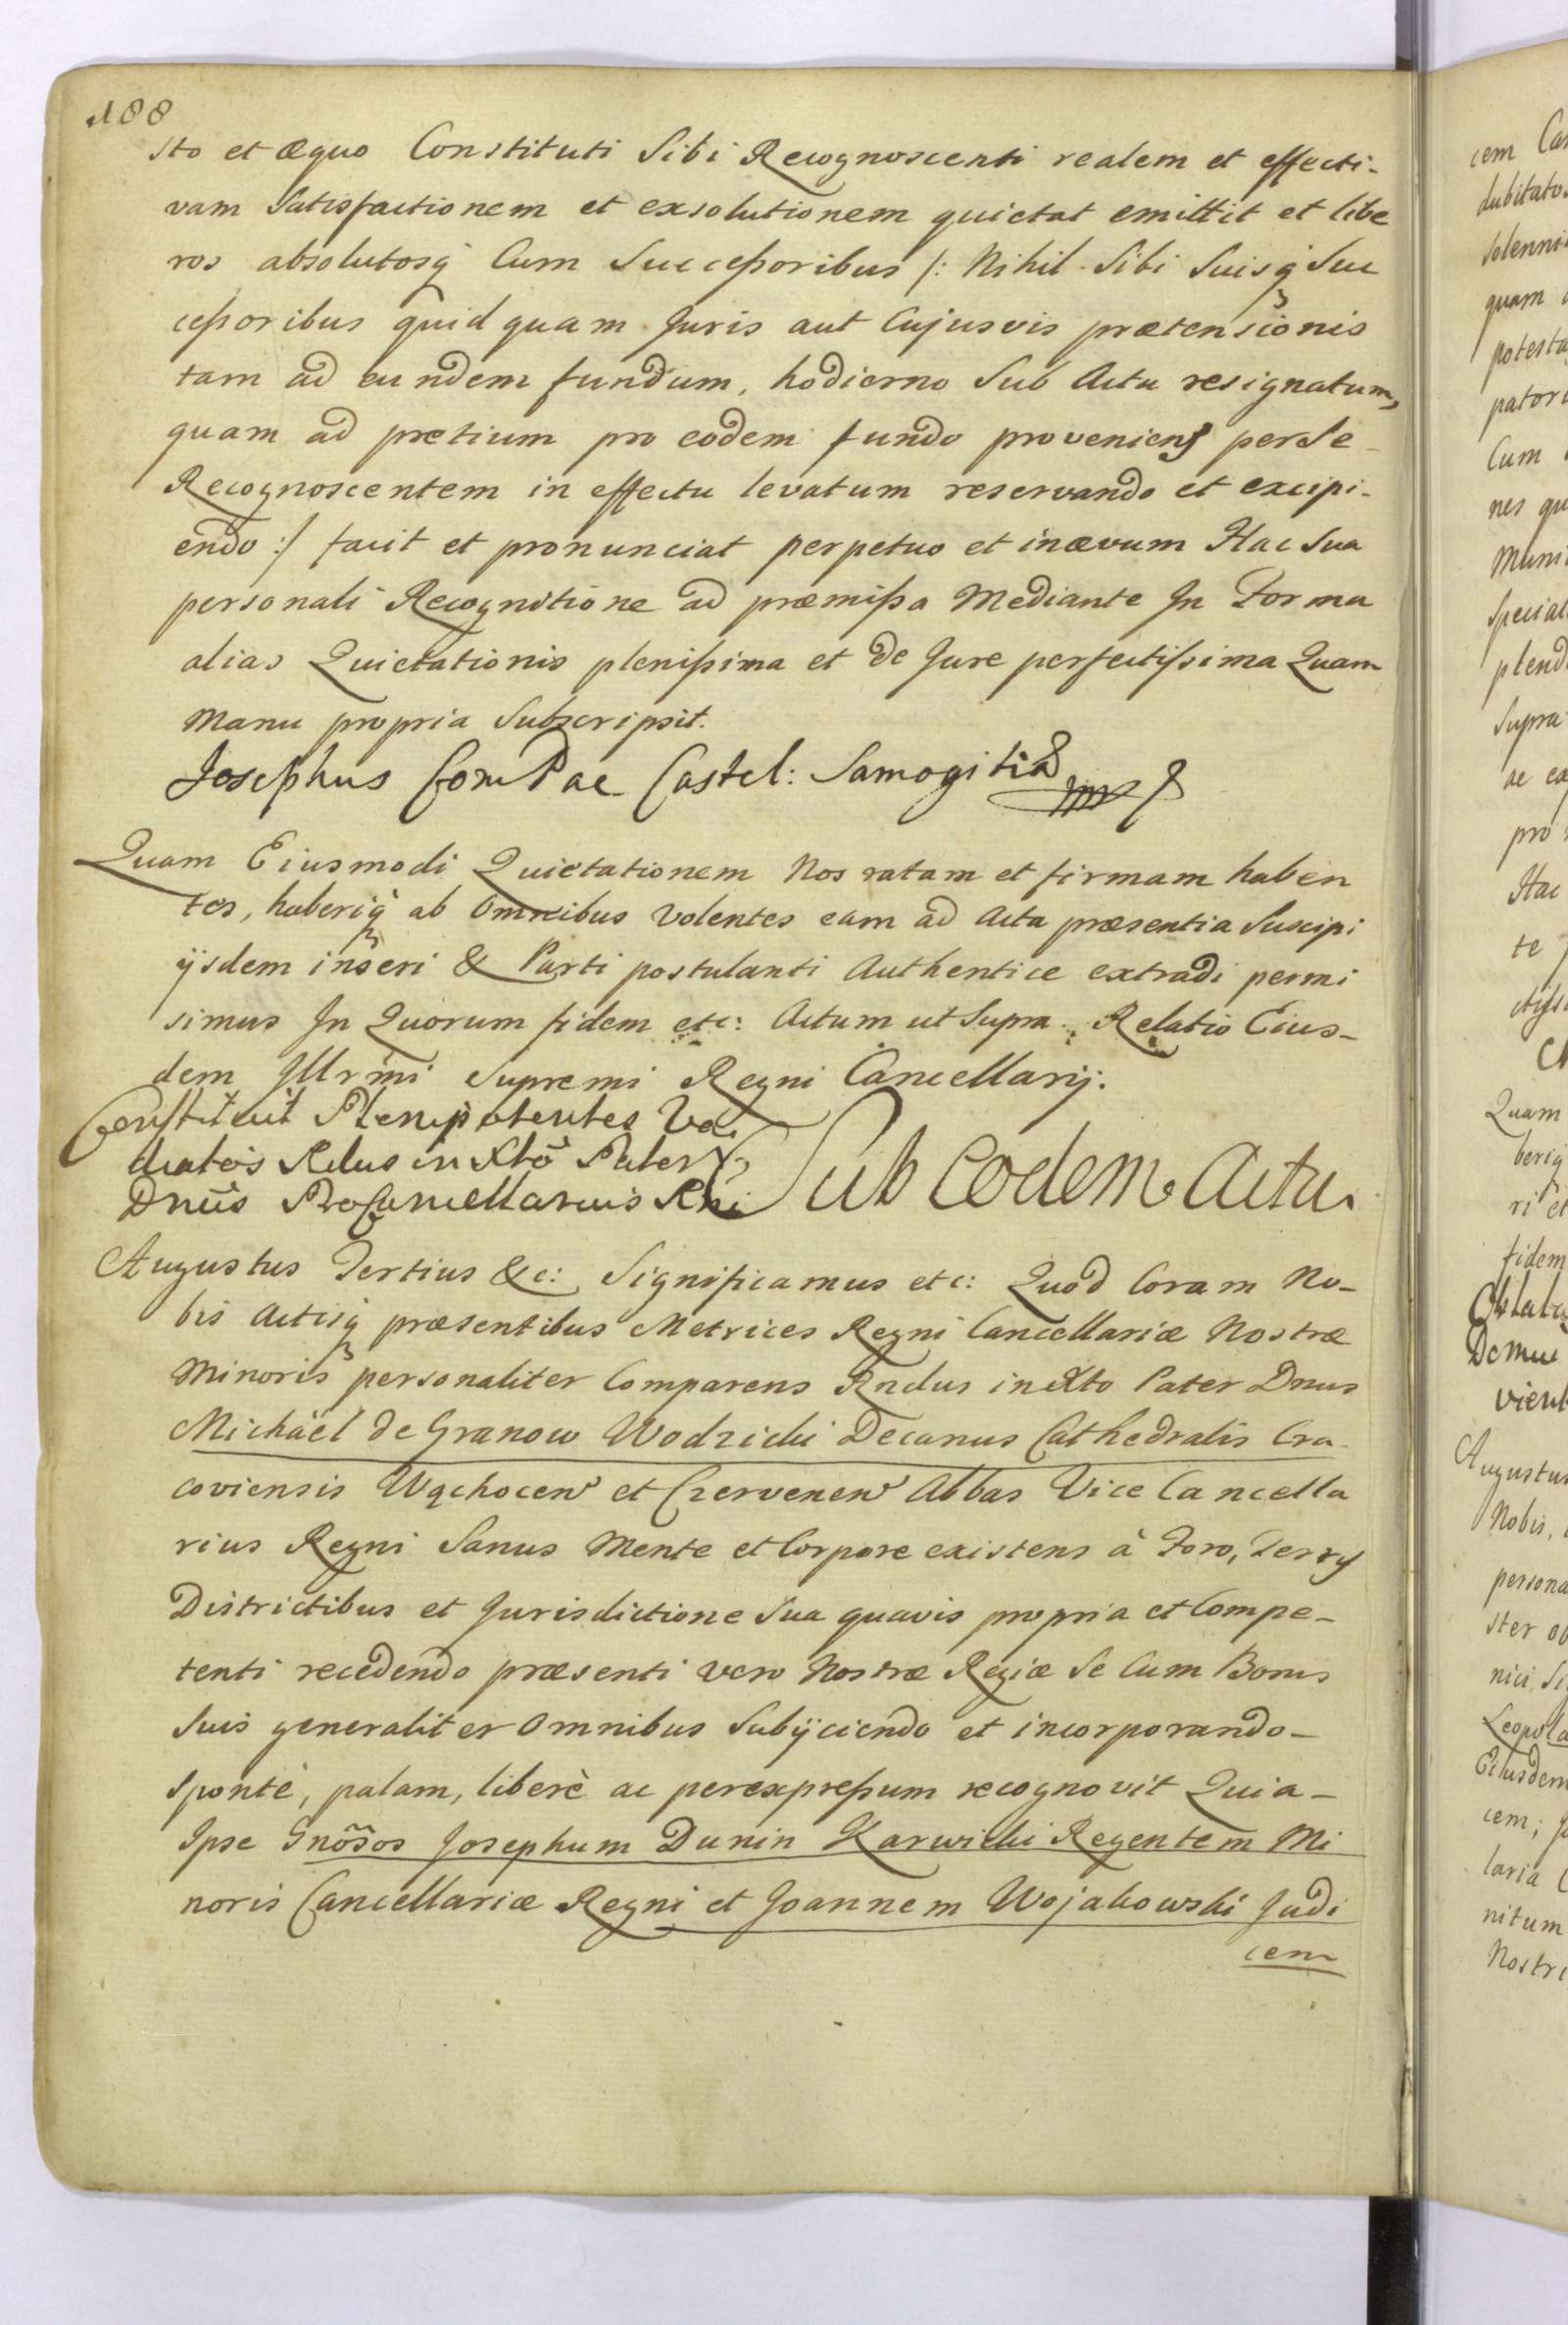 188
sto et æquo Constituti Sibi Recognoscenti realem et effecti-
vam Satisfactionem et exsolutionem quietat emittit et libe
ros absolutosq Cum Successoribus /: Nihil Sibi Suisq Suc
cessoribus quidquam Juris aut Cujusvis prætensionis
tam ad eundem fundum, hodierno Sub Actu resignatum,
quam ad pretium pro eodem fundo proveniens per Se
Recognoscentem in effectu levatum reservando et excipi-
endo :/ facit et pronunciat perpetuo et inævum Hac Sua
personali Recognitione ad præmissa Mediante In Forma
alias Quietationis plenissima et de Jure perfectissima Quam
Manu propria Subscripsit.
Josephus Com Pac Castel: Samogitiæ mp
Quam Eiusmodi Quietationem Nos ratam et firmam haben
tes, haberiq ab Omnibus Volentes eam ad Acta præsentia Suscipi
ijsdem inseri & Parti postulanti Authentice extradi permi
simus In Quorum fidem etc: Actum ut Supra. Relatio Eius-
dem Illrmi Supremi Regni Cancellarij.
Constituit Plenipotentes
Rdus in Xto Pater
Dnus ProCancellarius Rni
Sub Eodem Actu
Augustus Tertius &c: Significamus etc: Quod Coram No-
bis Actisq præsentibus Metrices Regni Cancellariæ Nostræ
Minoris personaliter Comparens Rndus in Xto Pater Dnus
Michäel de Granow Wodzicki Decanus Cathedralis Cra
coviensis Wąchocen et Czervenen Abbas Vice Cancella
rius Regni Sanus Mente et Corpore existens à Foro, Terrs
Districtibus et Jurisdictione Sua quavis propria et Compe-
tenti recedendo præsenti vero Nostræ Regiæ Se Cum Bonis
Suis generaliter Omnibus Subijciendo et incorporando-
Spontè, palam, liberè ac perexpressum recognovit Quia-
Ipse Gnõsos Josephum Dunin Karwicki Regentem Mi
noris Cancellariæ Regni et Joannem Wojakowski Judi
cem
cem
dubitatos
solenni
quam
potesta
patori
Cum
nes qu
Muni
Special
plend
Supra
ac ea
pro
Hac
te
Quam
beriq
ri et
fidem
Augustus
Nobis,
persona
ster ob
nici
Leopol
Eiusdem
cem;
laria
nitum
Nostri